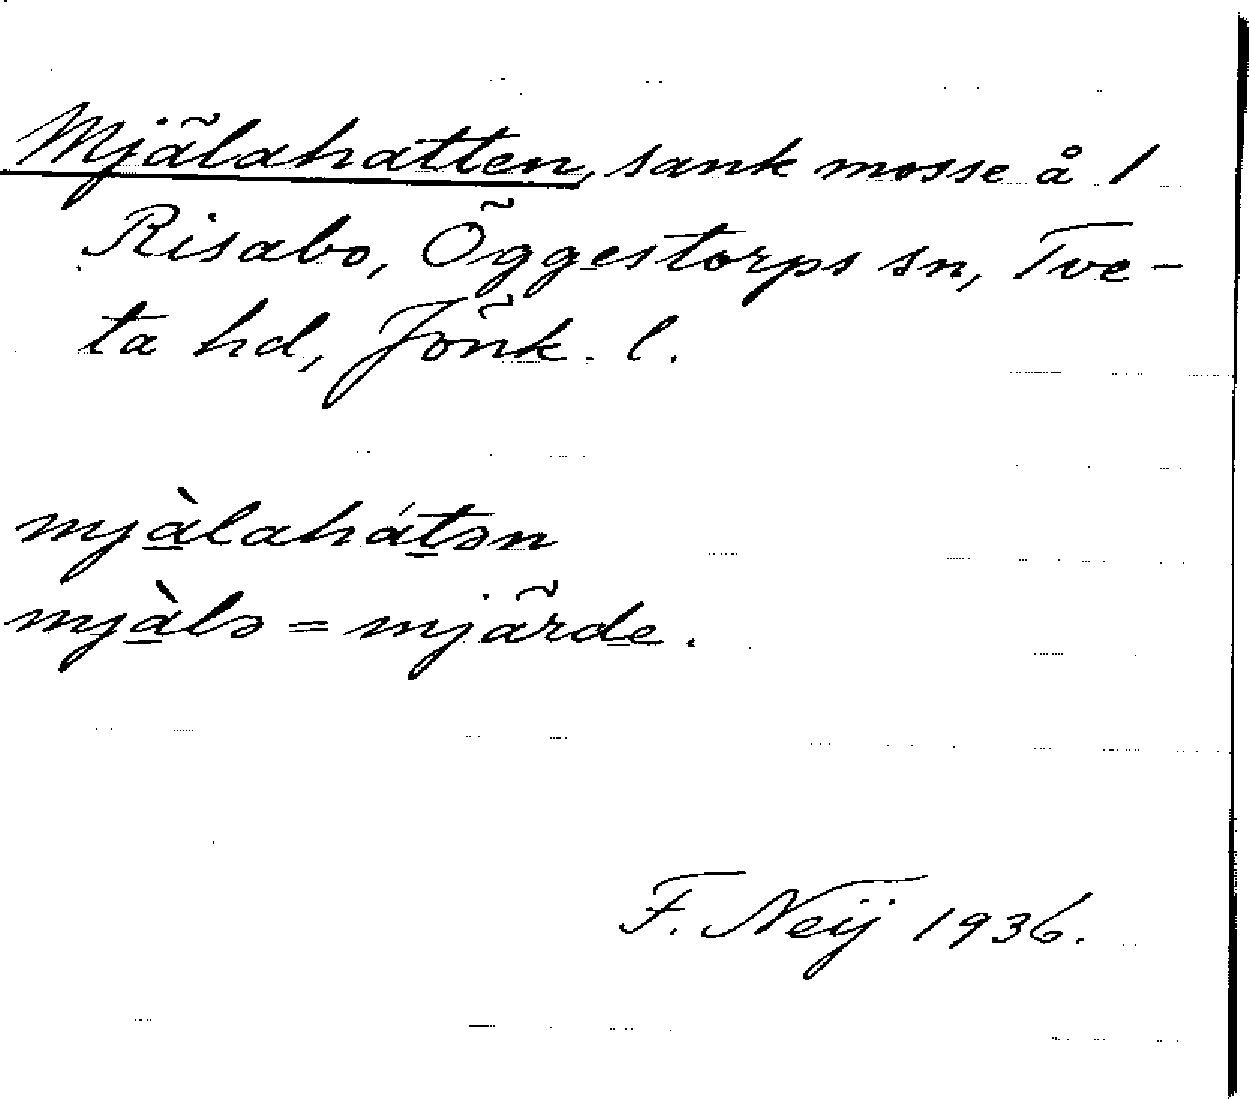 Mjälahatten, sank mosse å 1
Risabo, Öggestorps sn, Tve-
ta hd, Jönk. l.
mjàlahátən
mjàlə = mjärde.
F. Neij 1936.